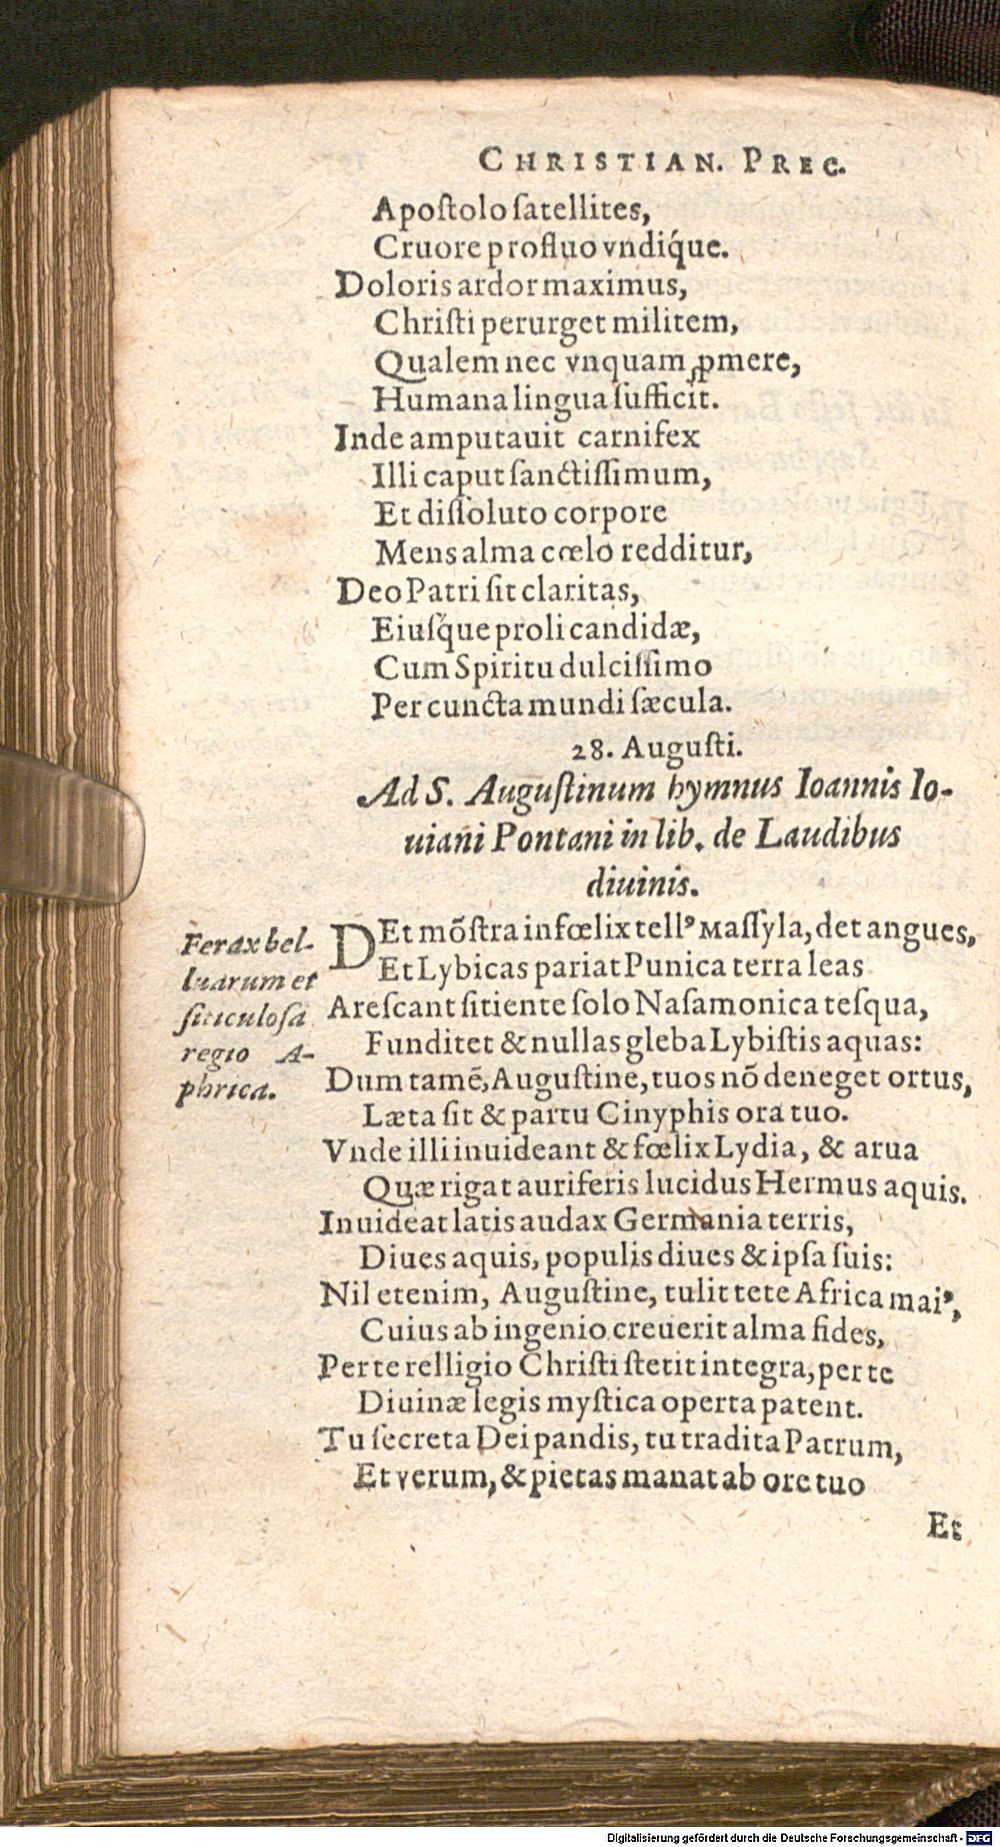 CHRISTIAN. PREC.
Apoſtolo ſatellites,
Cruore profluo vndiq́ue.
Doloris ardor maximus,
Chriſti perurget militem,
Qualem nec vnquam ꝓmere,
Humana lingua ſufficit.
Inde amputauit carnifex
Illi caput ſanctiſſimum,
Et diſſoluto corpore
Mens alma cœlo redditur,
Deo Patri ſit claritas,
Eiuſq́ue proli candidæ,
Cum Spiritu dulciſſimo
Per cuncta mundi ſæcula.
28. Auguſti.
Ad S. Auguſtinum hymnus Ioannis Io-
uiani Pontani in lib. de Laudibus
diuinis.
DEt mõſtra infœlix tellꝰ Maſſyla, det angues,
Et Lybicas pariat Punica terra leas
Areſcant ſitiente ſolo Naſamonica teſqua,
Funditet & nullas gleba Lybiſtis aquas:
Dum tamẽ, Auguſtine, tuos nõ deneget ortus,
Læta ſit & partu Cinyphis ora tuo.
Vnde illi inuideant & fœlix Lydia, & arua
Quæ rigat auriferis lucidus Hermus aquis.
Inuideat latis audax Germania terris,
Diues aquis, populis diues & ipſa ſuis:
Nil etenim, Auguſtine, tulit tete Africa maiꝰ,
Cuius ab ingenio creuerit alma fides,
Per te relligio Chriſti ſtetit integra, per te
Diuinæ legis myſtica operta patent.
Tu ſecreta Dei pandis, tu tradita Patrum,
Et verum, & pietas manat ab ore tuo
Et
Ferax bel-
luarum et
ſiticuloſa
regio A-
phrica.
Digitalisierung gefördert durch die Deutsche Forschungsgemeinschaft - DFG